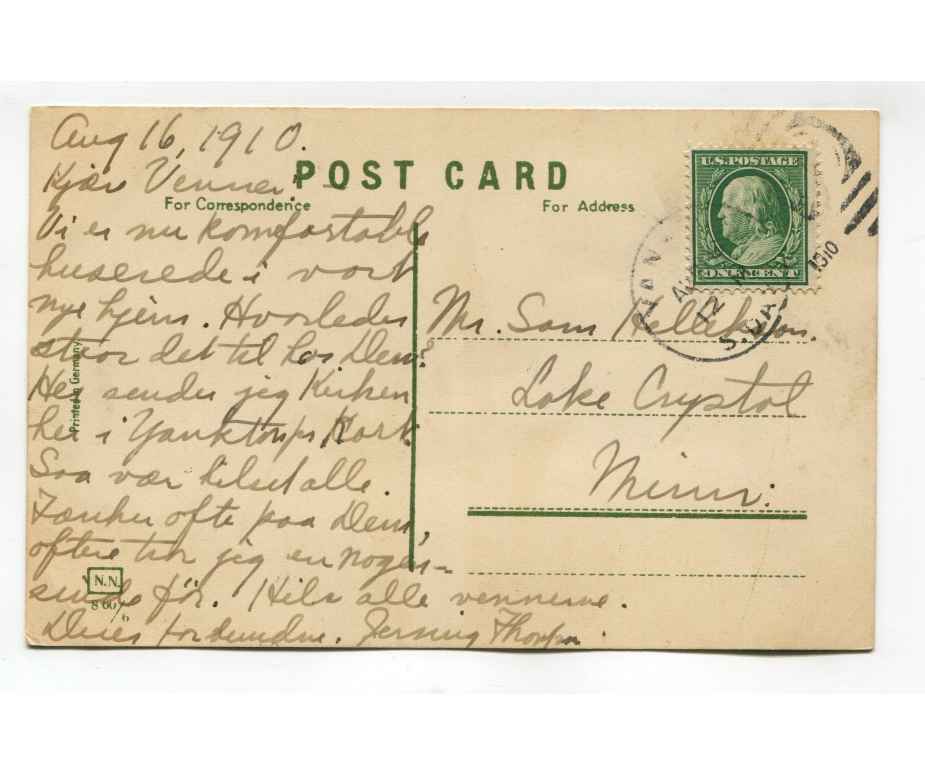 Aug 16, 1910.
Kjære Venner:-
POST CARD
For Correspondence
For Address
Vi er nu komfortable
huserede i vort
nye hjem. Hvorledes
staar det til hos Dem?
Her sender jeg Kirken
her i Yankton
Saa vær hilset alle.
Tænker ofte paa Dem,
oftere tror jeg en nogen-
sinde før. Hils alle vennerne.
Deres forbundne.
Mr. Sam
Lake Crystal
Minn.
U.S. POSTAGE
ONE CENT
12
S. DAK.
1910
Printed in Germany
N.N.